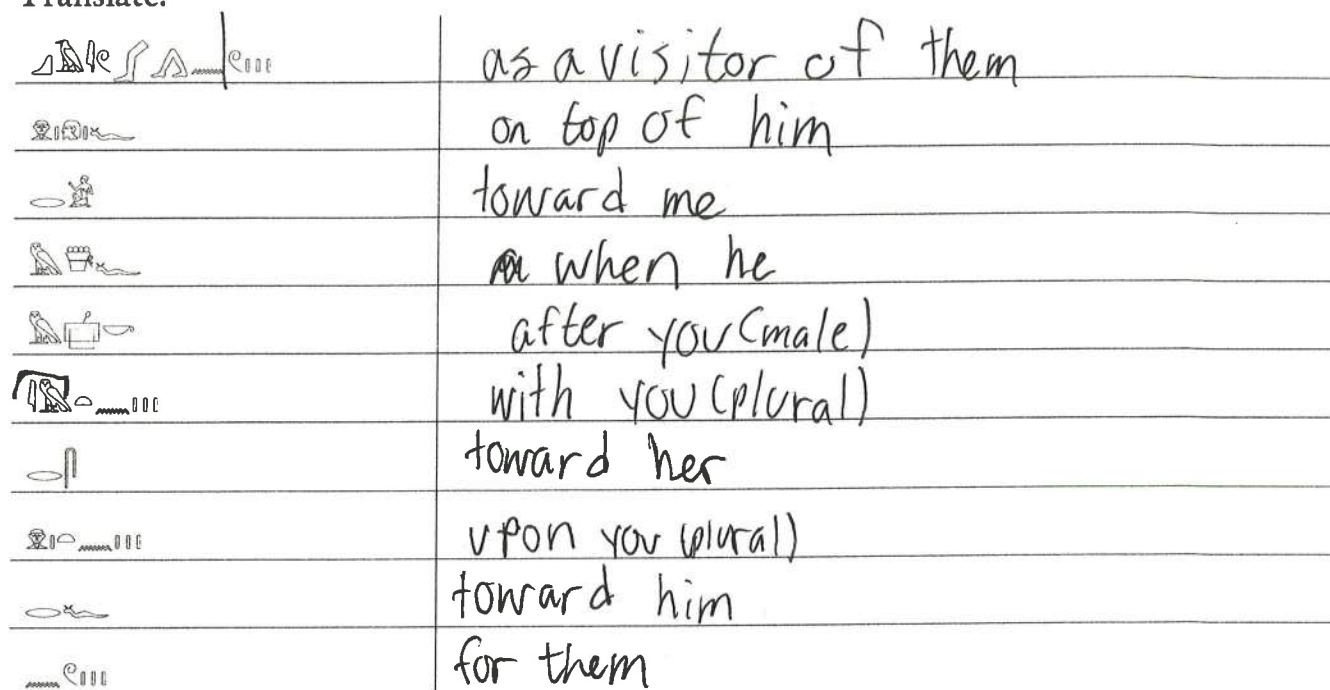 Translate:
as a visitor of them
𓁷𓏤𓁶𓏤𓆑 on top of him
𓂋𓀀 toward me
𓅓𓏃𓆑 when he
after you (male)
𓇋𓅓𓏏𓈖𓏥 with you (plural)
𓂋𓋴 toward her
𓁷𓏤𓏏𓈖𓏥 upon you (plural)
𓂋𓆑 toward him
𓈖𓏲𓏥 for them